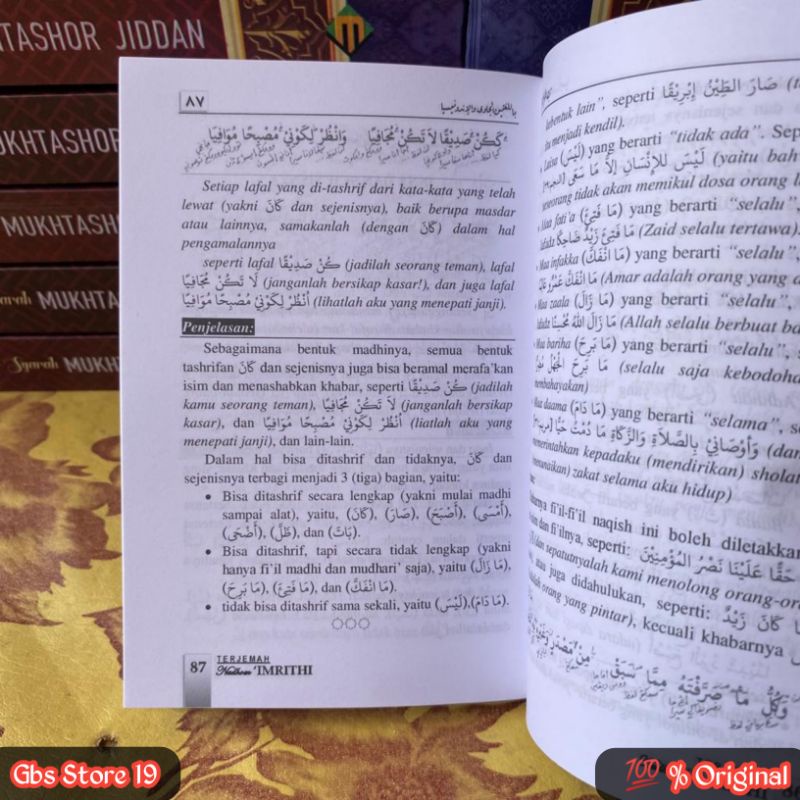 TASHOR JIDDAN
UKHTASHOR
MUKHTASHO
MUKHTA
Syarah MUKHTA
Syarah MUKHT
٨٧
كَكُنْ صَدِيْقًا لاَ تَكُنْ مُجَافِيَا وَانْظُرْ لِكَوْنِيْ مُصْبِحًا مُوَافِيَا
Setiap lafal yang di-tashrif dari kata-kata yang telah
lewat (yakni كَانَ dan sejenisnya), baik berupa masdar
atau lainnya, samakanlah (dengan كَانَ) dalam hal
pengamalannya
seperti lafal كُنْ صَدِيْقًا (jadilah seorang teman), lafal
لَا تَكُنْ مُجَافِيَا (janganlah bersikap kasar!), dan juga lafal
اُنْظُرْ لِكَوْنِيْ مُصْبِحًا مُوَافِيَا (lihatlah aku yang menepati janji).
Penjelasan:
Sebagaimana bentuk madhinya, semua bentuk
tashrifan كَانَ dan sejenisnya juga bisa beramal merafa’kan
isim dan menashabkan khabar, seperti كُنْ صَدِيْقًا (jadilah
kamu seorang teman), لَا تَكُنْ مُجَافِيَا (janganlah bersikap
kasar), dan اُنْظُرْ لِكَوْنِيْ مُصْبِحًا مُوَافِيَا (liatlah aku yang
menepati janji), dan lain-lain.
Dalam hal bisa ditashrif dan tidaknya, كَانَ dan
sejenisnya terbagi menjadi 3 (tiga) bagian, yaitu:
• Bisa ditashrif secara lengkap (yakni mulai madhi
sampai alat), yaitu, (كَانَ), (صَارَ), (أَصْبَحَ), (أَمْسَى),
(أَضْحَى), (ظَلَّ), dan (بَاتَ).
• Bisa ditashrif, tapi secara tidak lengkap (yakni
hanya fi’il madhi dan mudhari’ saja), yaitu (مَا زَالَ),
(مَا بَرِحَ), (مَا فَتِئَ), dan (مَا انْفَكَّ).
• tidak bisa ditashrif sama sekali, yaitu (لَيْسَ),(مَا دَامَ).
87 TERJEMAH
Nadhom ‘IMRITHI
bentuk lain”, seperti صَارَ الطِّيْنُ إِبْرِيْقًا
itu menjadi kendil).
Laisa (لَيْسَ) yang berarti “tidak ada”. Sep
لَيْسَ لِلإِنْسَانِ إِلاَّ مَا سَعَى (yaitu bah
seseorang tidak akan memikul dosa orang l
Maa fati’a (مَا فَتِئَ) yang berarti “selalu”,
مَا فَتِئَ زَيْدٌ ضَاحِكًا (Zaid selalu tertawa).
Maa infakka (مَا انْفَكَّ) yang berarti “selalu”,
مَا انْفَكَّ عَمْرٌو (Amar adalah orang yang a
Maa zaala (مَا زَالَ) yang berarti “selalu”,
مَا زَالَ اللهُ مُحْسِنًا (Allah selalu berbuat ba
Maa bariha (مَا بَرِحَ) yang berarti “selalu”,
مَا بَرِحَ الْجَهْلُ (selalu saja kebodoha
membahayakan)
Maa daama (مَا دَامَ) yang berarti “selama”, s
وَأَوْصَانِيْ بِالصَّلَاةِ وَالزَّكَاةِ مَا دُمْتُ حَيًّا (dan
memerintahkan kepadaku (mendirikan) sholat
zakat selama aku hidup)
fi’il-fi’il naqish ini boleh diletakkan
dan fi’ilnya, seperti: حَقًّا عَلَيْنَا نَصْرُ الْمُؤْمِنِيْنَ
dan sepatutnyalah kami menolong orang-ora
atau juga didahulukan, seperti:
orang yang pintar), kecuali khabarnya
وَكُلُّ مَا صَرَّفْتَهُ مِمَّا سَبَقْ مِنْ مَصْدَرٍ
Gbs Store 19
💯 % Original